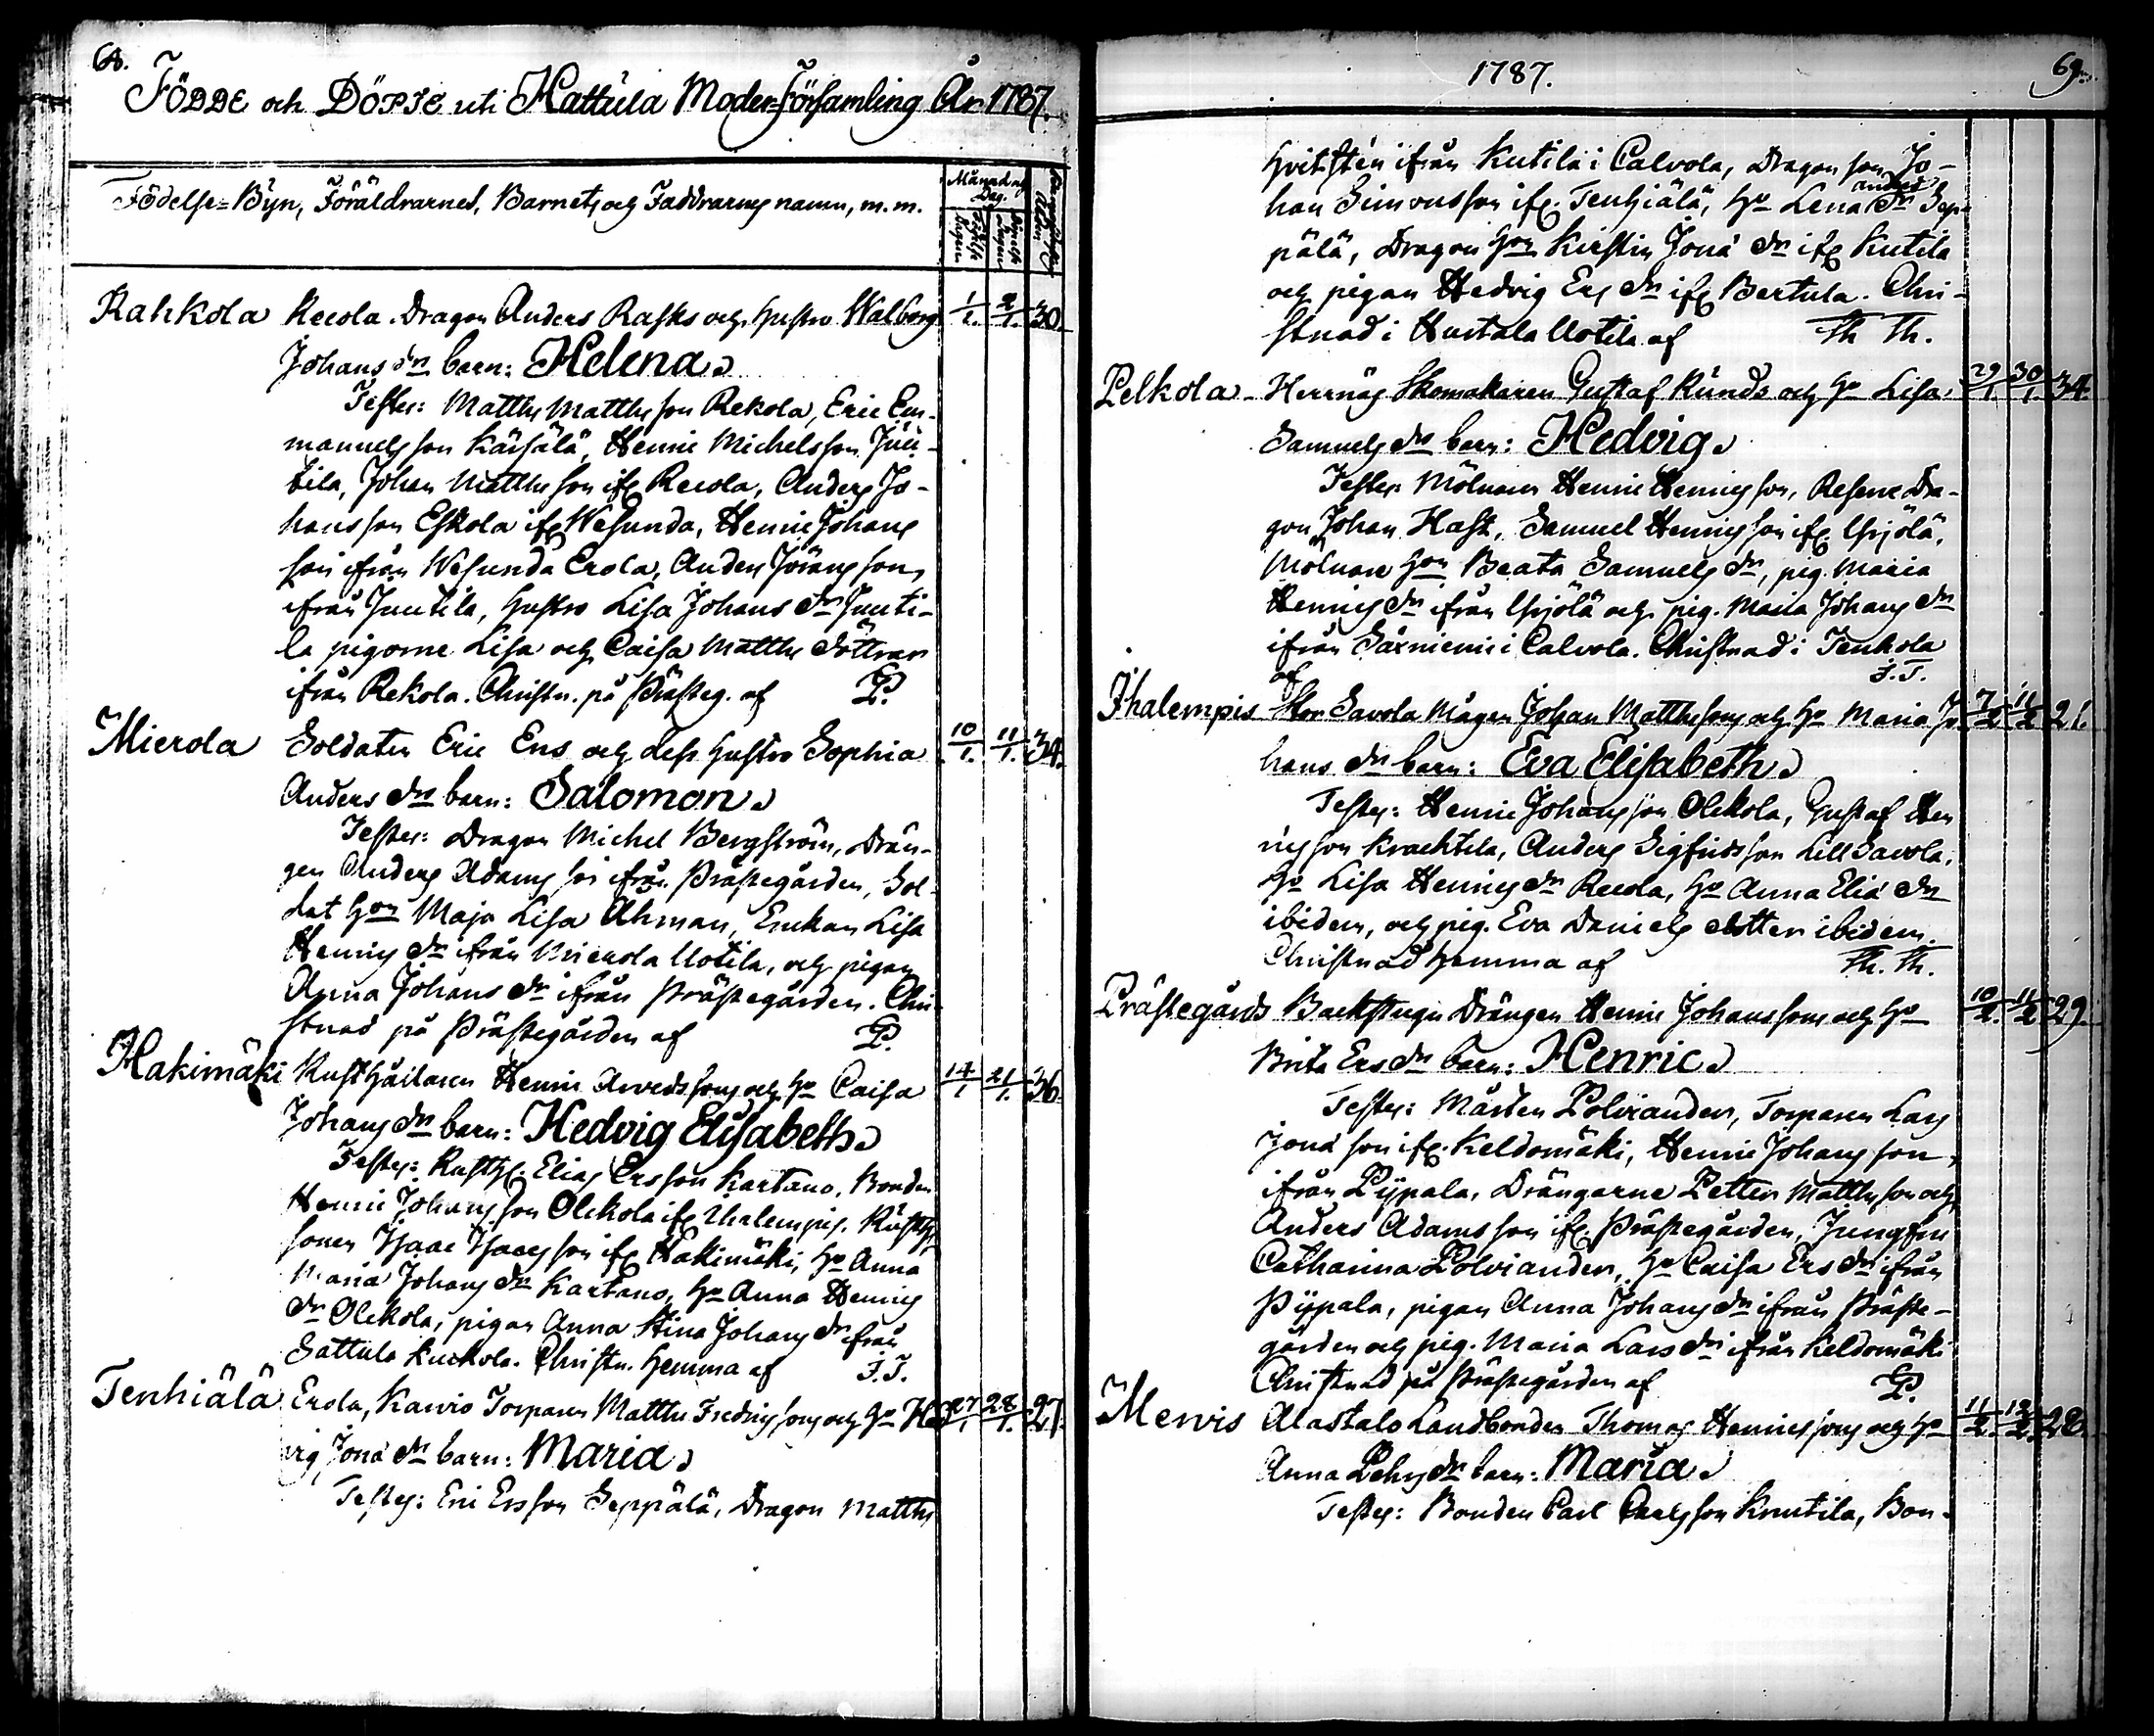 68.
FÖDDE och DÖPTE uti Hattula Moder-Församling År 1787.
Födelse-Byn, Föräldrarnes, Barnets och Faddrarnes namn, m. m.
Månad och Dag.
Födelse Dagen
Döpelse Dagen
Rahkola Recola. Dragon Anders Rasks och hustru Walborg 1/1. 2/1. 30.
Johans dr barn: Helena.
Testes: Matths Matthsson Rekola, Eric Em-
manuelsson Kärjälä, Henric Michelsson Juu-
tila, Johan Matthsson ifr. Recola, Anders Jo-
hansson Eskola ifr. Wesunda, Henric Johans
son ifrån Wesunda Erola, Anders Jöransson,
ifrån Juutila, hustru Lisa Johans dr Juuti-
la pigorne Lisa och Caisa Matths döttrar
ifrån Rekola. Christn. på Prästeg. af P.
Mierola Soldaten Eric Ens och dess hustru Sophia 10/1. 11/1. 34.
Anders dr barn: Salomon.
Testes: Dragon Michel Bergström, Drän-
gen Anders Adamsson ifrån Prästegården, Sol-
dat hon Maja Lisa Ahman, Enkan Lisa
Henrics dr ifrån Mierola Uotila, och pigan
Anna Johans dr ifrån Prästegården. Chri-
stnad på Prästegården af P.
Hakimäki Rusthållaren Henric Arvedssons och ho Caisa 14/1 21/1. 36.
Johans dr barn: Hedvig Elisabeth.
Testes: Rusth. Elias Ersson Kartano, Bonden
Henric Johansson Olckola ifr. Ihalempis, Rusth.
sonen Isaac Isacsson ifr. Hakimäki, ho Anna
Maria Johans dr Kartano, ho Anna Henrics
dr Olckola, pigan Anna Stina Johans dr ifrån
Sattula Kuckola. Christn. hemma af F.T.
Tenhiälä Erola, Karvio Torparen Matths Fredricssons och ho Hed 27/1 28/1. 27.
vig Jona dr barn: Maria.
Testes: Eric Ersson Seppälä, Dragon Matths
1787.
69.
Hvitstén ifrån Kutila i Calvola, Dragon son Jo-
han Simonsson ifr. Tenhiälä, ho Lena Anders dr Sep-
pälä, Dragon hon Kirstin Jona dr ifr. Kutila
och pigan Hedvig Ers dr ifr. Bertula. Chri-
stnad i Hurtala Uotila af Th Th.
Pelkola Herrnäs Skomakaren Gustaf Runds och ho Lisa 29/1 30/1. 34.
Samuels dr barn: Hedvig.
Testes: Mölnaren Henric Henricsson, Reserve Dra-
gon Johan Hast, Samuel Henricsson ifr. Uhjölä,
Mölnare hon Beata Samuels dr, pig. Maria
Henrics dr ifrån Uhjölä och pig. Maria Johans dr
ifrån Särniemi i Calvola. Christnad i Tenhola
af F.T.
Ihalempis Stor Savola Mågen Johan Matthssons och ho Maria Jo 7/2 11/2 21.
hans dr barn: Eva Elisabeth.
Testes: Henric Johansson Olckola, Gustaf Hen
ricsson Krachtila, Anders Sigfridsson Lill Savola,
ho Lisa Henrics dr Recola, ho Anna Elia dr
ibidem, och pig. Eva Daniels dotter ibidem.
Christnad hemma af Th. Th.
Prästegårds Backstugu Drängen Henric Johanssons och ho 10/2. 11/2 29.
Brita Ers dr barn: Henric.
Testes: Mårten Polviander, Torparen Lars
Jona son ifr. Keldomäki, Henric Johansson,
ifrån Pÿpala, Drängarne Petter Matthsson och
Anders Adamsson ifr. Prästegården, Jungfru
Catharina Polviander, ho Caisa Ers dr ifrån
Pÿpala, pigan Anna Johans dr ifrån Präste-
gården och pig. Maria Lars dr ifrån Keldomäki
Christnad på Prästegården af P.
Mervis Alastalo Landbonden Thomas Henricssons och ho 11/2. 12/2. 28.
Anna Pehrs dr barn: Maria.
Testes: Bonden Carl Carlsson Knutila, Bon-